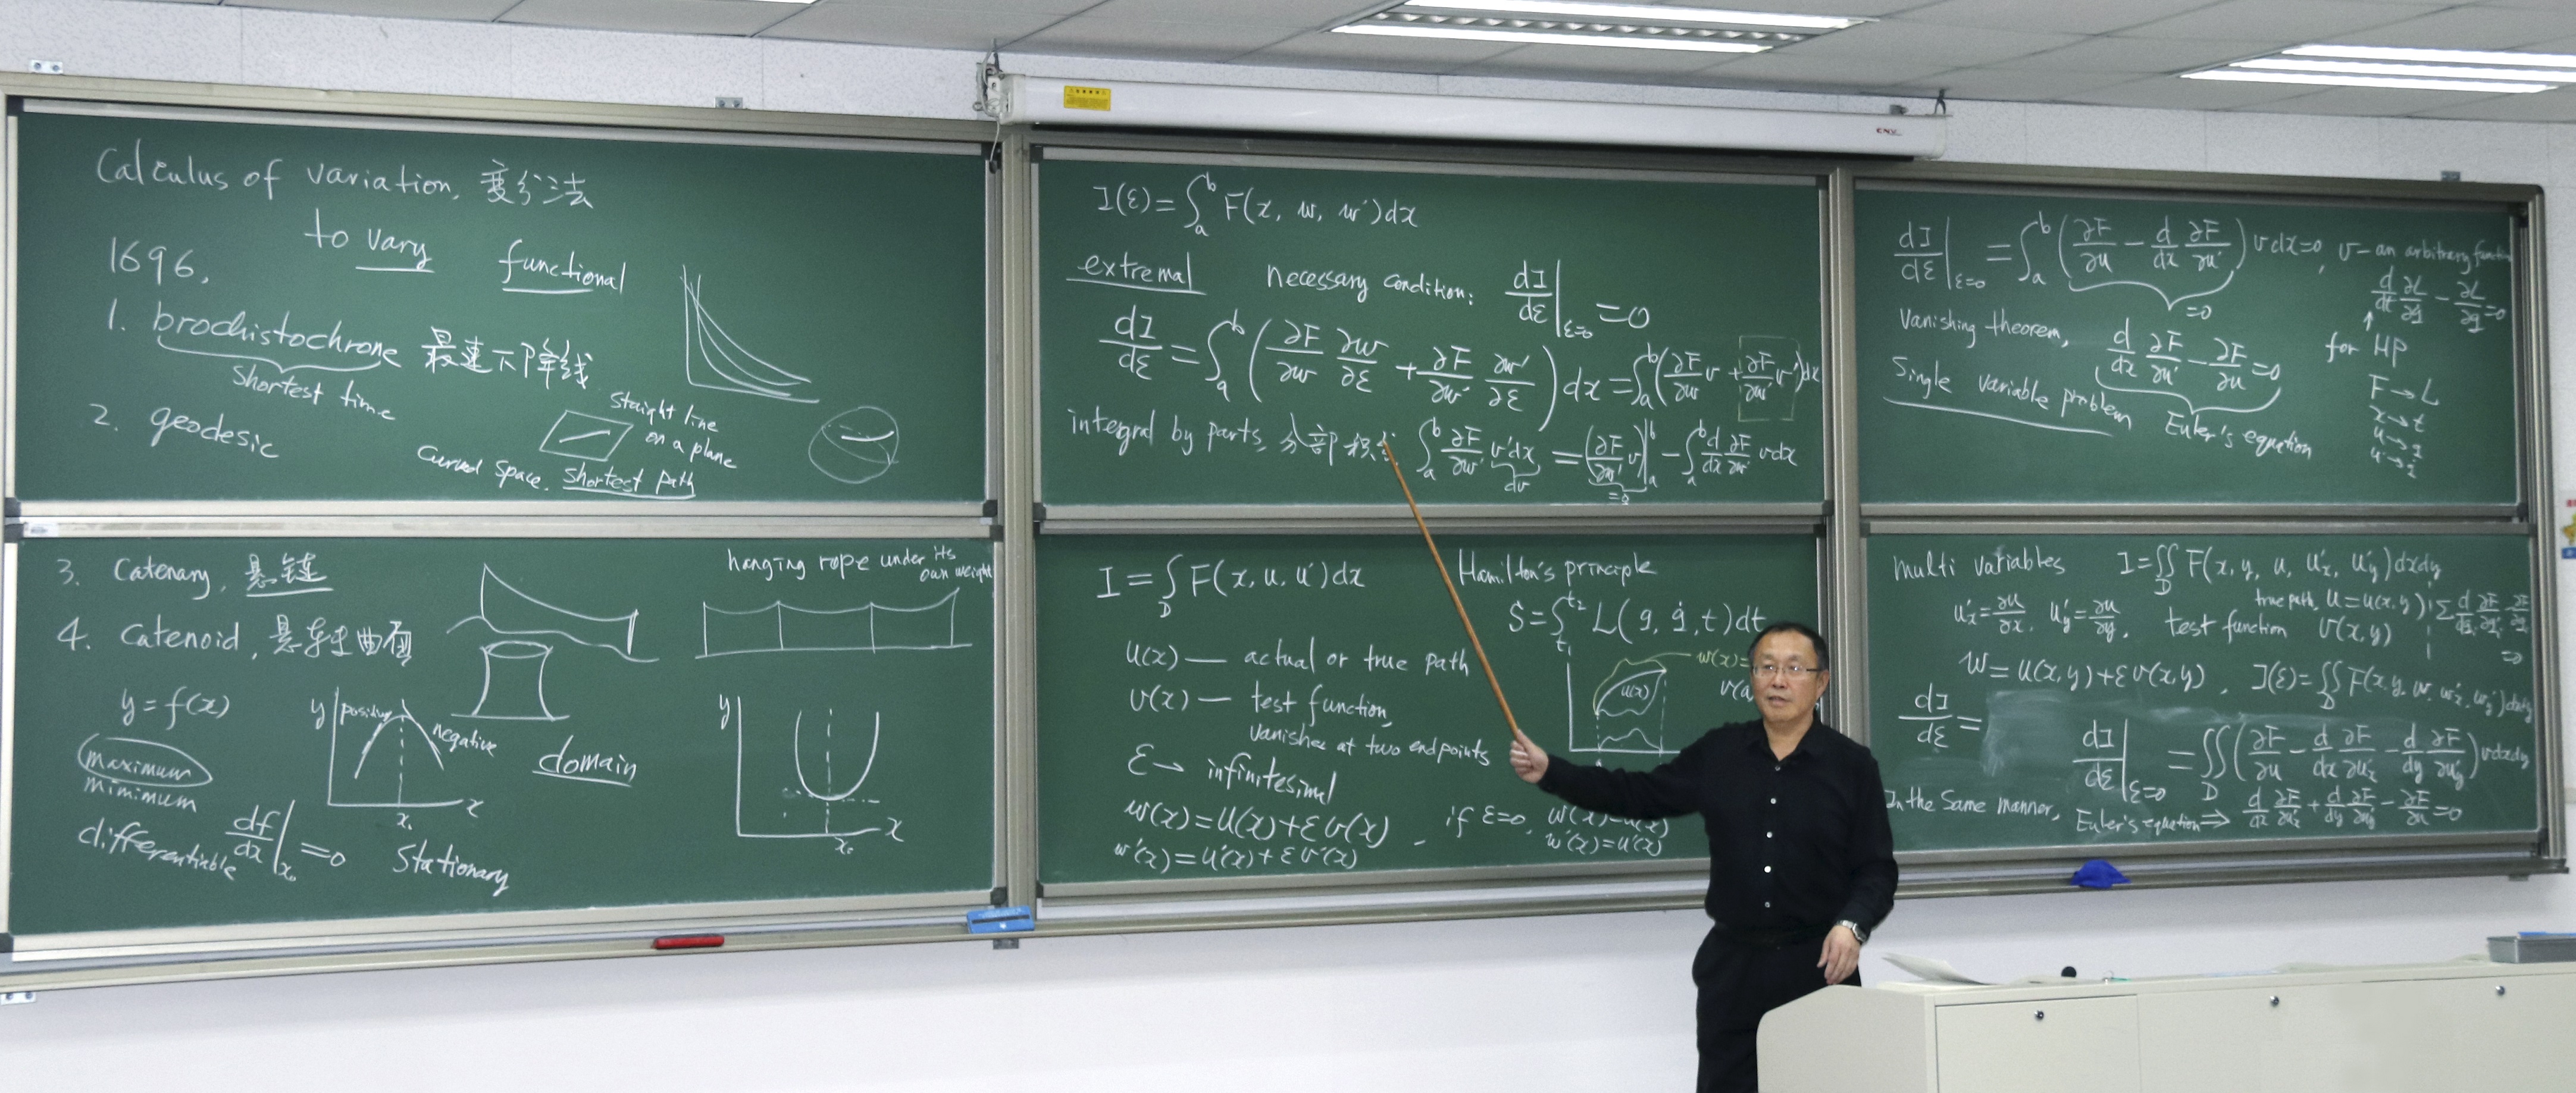 Calculus of variation, 变分法
to vary functional
1696,
1. brochistochrone 最速下降线
shortest time
2. geodesic
Staight line
on a plane
Curved space. Shortest path
3. Catenary, 悬链
hanging rope under its
own weight
4. Catenoid, 悬链曲面
y=f(x)
maximum
mimimum
differentiable df/dx|x₀ =0 Stationary
y positive negative x₀ x
domain
y x₀ x
I(ε)=∫_a^b F(x, w, w′)dx
extremal necessary condition: dI/dε|ε=0 =0
dI/dε=∫_a^b(∂F/∂w ∂w/∂ε + ∂F/∂w′ ∂w′/∂ε)dx=∫_a^b(∂F/∂w v+∂F/∂w′ v′)dx
integral by parts, 分部积分 ∫_a^b ∂F/∂w′ v′dx = (∂F/∂w′ v)|_a^b − ∫_a^b d/dx ∂F/∂w′ vdx
dv =0
I=∫_D F(x, u, u′)dx
u(x) — actual or true path
v(x) — test function,
vanishes at two endpoints
ε→ infinitesimal
w(x)=u(x)+εv(x), if ε=0, w(x)=u(x)
w′(x)=u′(x)+εv′(x) w′(x)=u′(x)
Hamilton's principle
S=∫_t₁^t₂ L(q, q̇, t)dt
w(x)=
u(x)
v(a
dI/dε|ε=0 =∫_a^b(∂F/∂u − d/dx ∂F/∂u′)vdx=0, v−an arbitrary function
=0
d/dt ∂L/∂q̇ − ∂L/∂q=0
Vanishing theorem, d/dx ∂F/∂u′ − ∂F/∂u=0
↑
for HP
Single variable problem Euler's equation
F→L
x→t
u→q
u′→q̇
multi variables I=∬_D F(x, y, u, u′x, u′y)dxdy
u′x=∂u/∂x, u′y=∂u/∂y,
true path, u=u(x,y)
test function v(x,y)
w=u(x,y)+εv(x,y), I(ε)=∬_D F(x,y,w,w′x,w′y)dxdy
dI/dε=
dI/dε|ε=0 =∬_D(∂F/∂u − d/dx ∂F/∂u′x − d/dy ∂F/∂u′y)vdxdy
In the same manner, Euler's equation⇒ d/dx ∂F/∂u′x + d/dy ∂F/∂u′y − ∂F/∂u=0